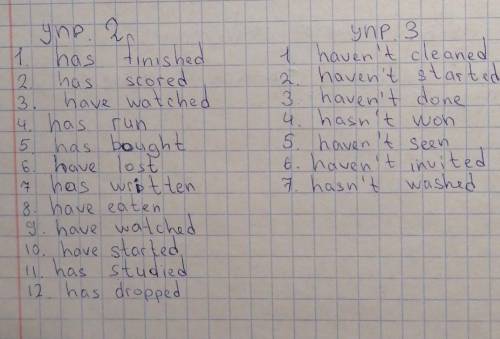 упр. 2
1. has finished
2 has scored
3. have watched
4. has run
5. has bought
6. have lost
7 has written
8. have eaten
9. have watched
10. have started
11. has studied
12. has dropped
упр. 3
1 haven't cleaned
2. haven't started
3 haven't done
4. hasn't won
5. haven't seen
6. haven't invited
7. hasn't washed